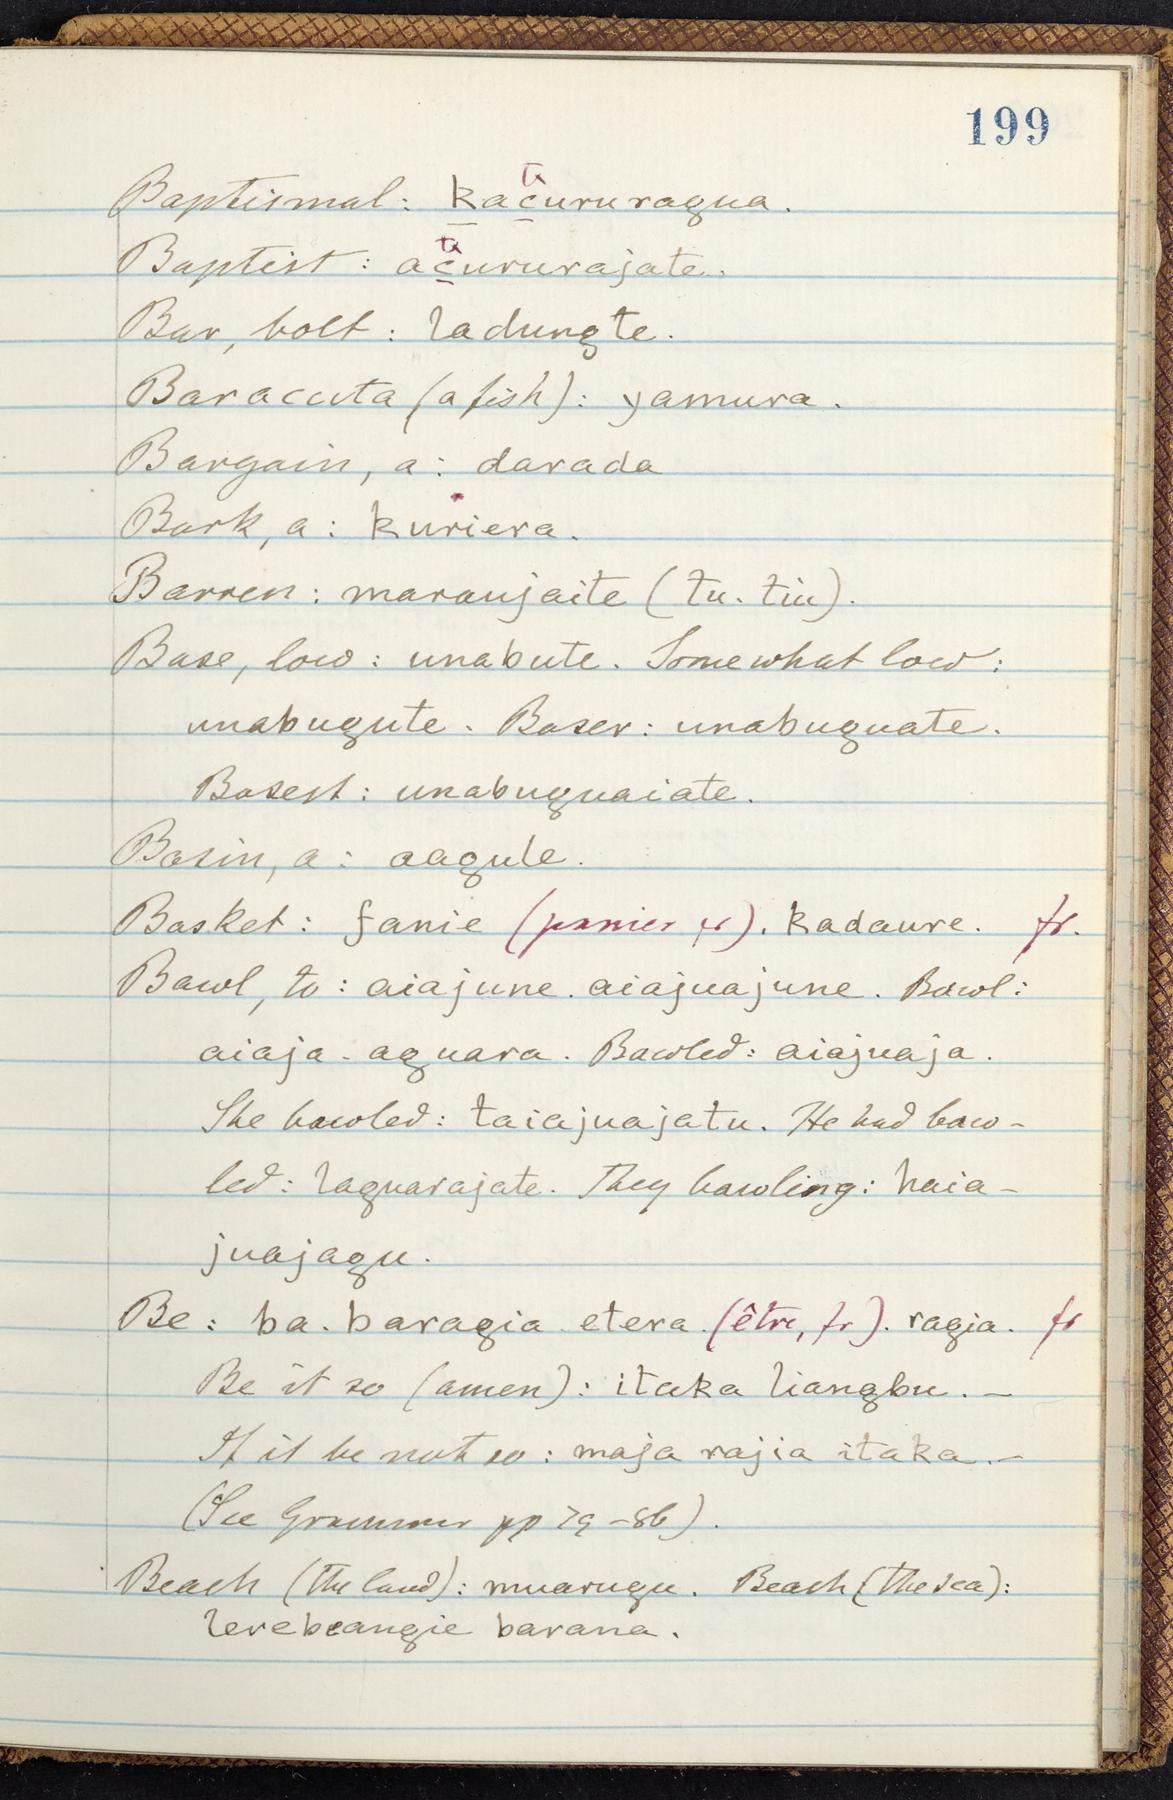 199
Baptismal: kacururagua.
ti
Baptist: acururajate.
ti
Bar, bolt: ladungte.
Baracuta (a fish): yamura.
Bargain, a: darada
Bark, a: kuriera.
Barren: maraujaite (tu. tiu).
Base, low: unabute. Somewhat low:
unabugute. Baser: unabuguate.
Basest: unabuguaiate.
Basin, a: aagule.
Basket: fanie (panier fr). kadaure. fr.
Bawl, to: aiajune. aiajuajune. Bawl:
aiaja - aguara. Bawled: aiajuaja.
She bawled: taiajuajatu. He had baw-
led: laguarajate. They bawling: haia-
juajagu.
Be: ba. baragia etera (être, fr). ragia. fr
Be it so (amen): itaka liangbu. –
If it be not so: maja rajia itaka. –
(See Grammar pp 79 – 86).
Beach (the land): muarugu. Beach (the sea):
lerebeangie barana.